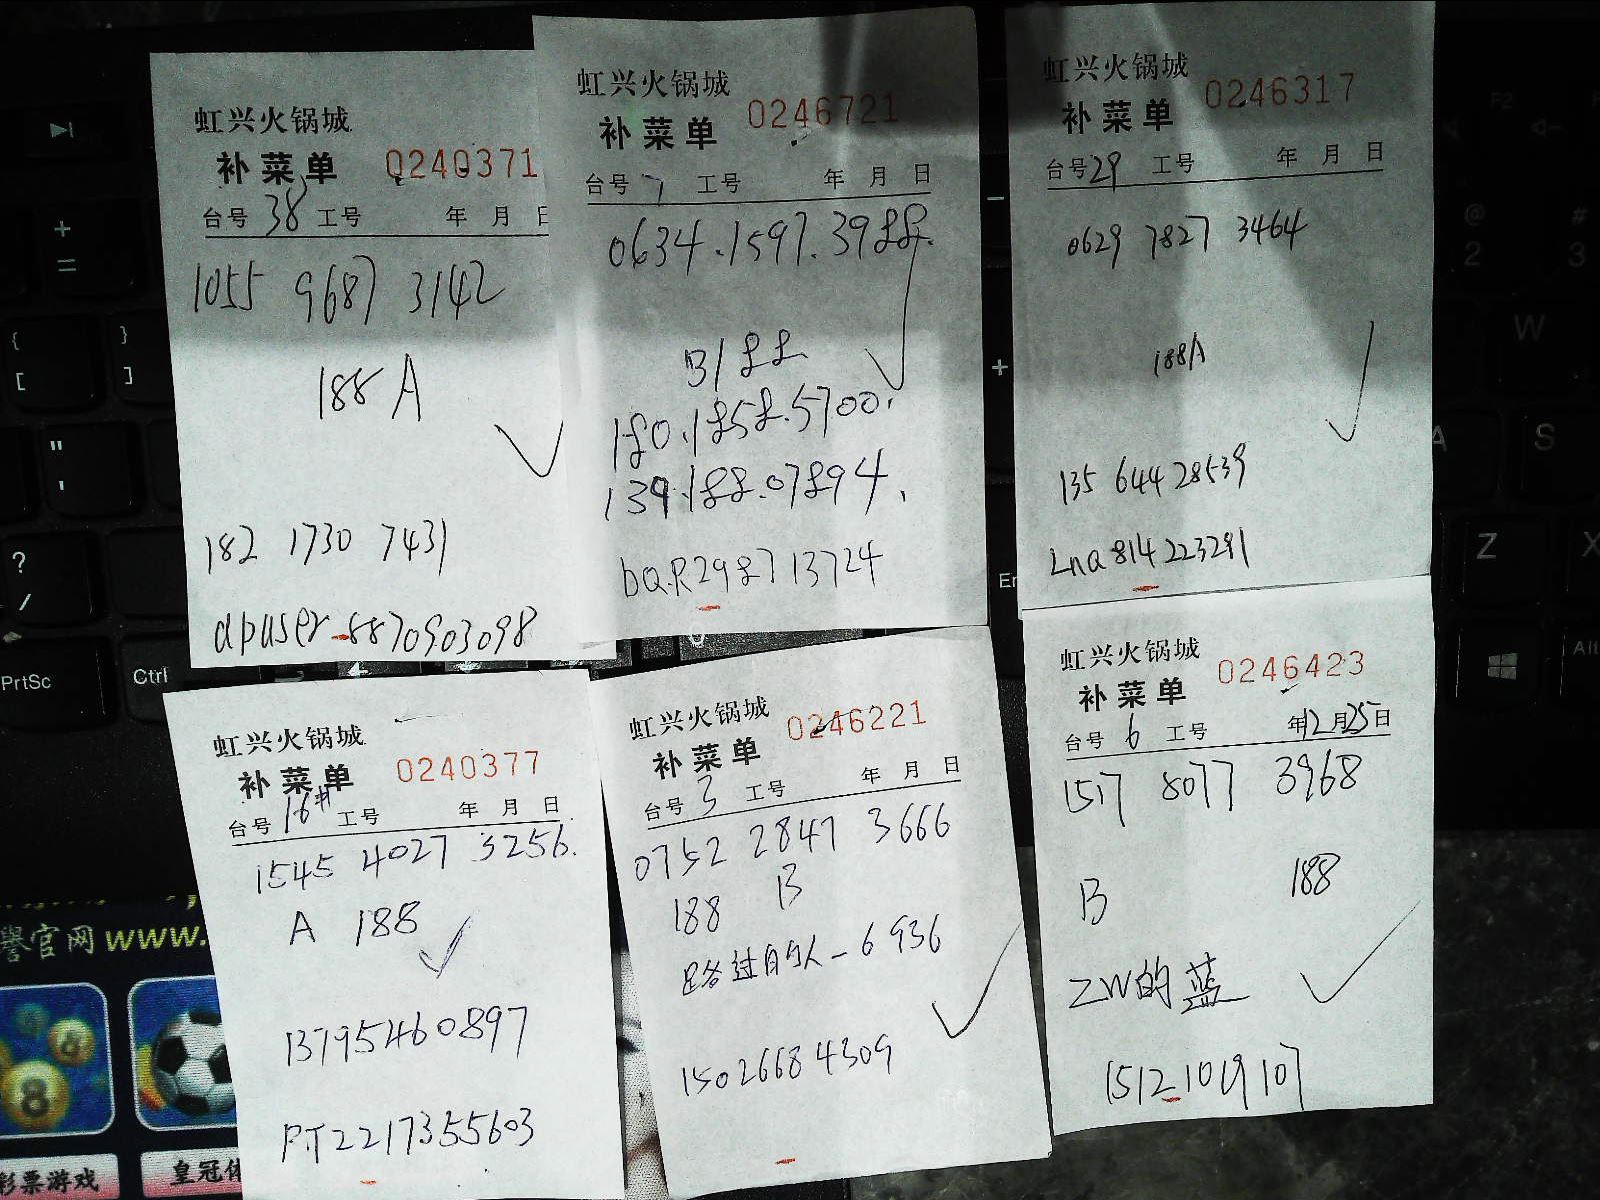 虹兴火锅城
补菜单 0240371
台号 38 工号 年 月 日
1055 9687 3142
188 A
182 1730 7431
dpuser-8870903098
虹兴火锅城
补菜单 0246721
台号 7 工号 年 月 日
0634.1597.3988.
B188
180.1858.5700.
139.188.07894.
bQ.R298713724
虹兴火锅城
补菜单 0246317
台号 29 工号 年 月 日
0629 7827 3464
188A
135 644 28539
Lna 814223291
虹兴火锅城
补菜单 0240377
台号 16# 工号 年 月 日
1545 4027 3256.
A 188
13795460897
P.T2217355603
虹兴火锅城
补菜单 0246221
台号 3 工号 年 月 日
0752 2847 3666
188 B
路过的人-6936
15026684309
虹兴火锅城
补菜单 0246423
台号 6 工号 年12月25日
1517 8077 3968
B 188
ZW的蓝
15121019107
PrtSc
Ctrl
誉官网 www.
彩票游戏
皇冠体